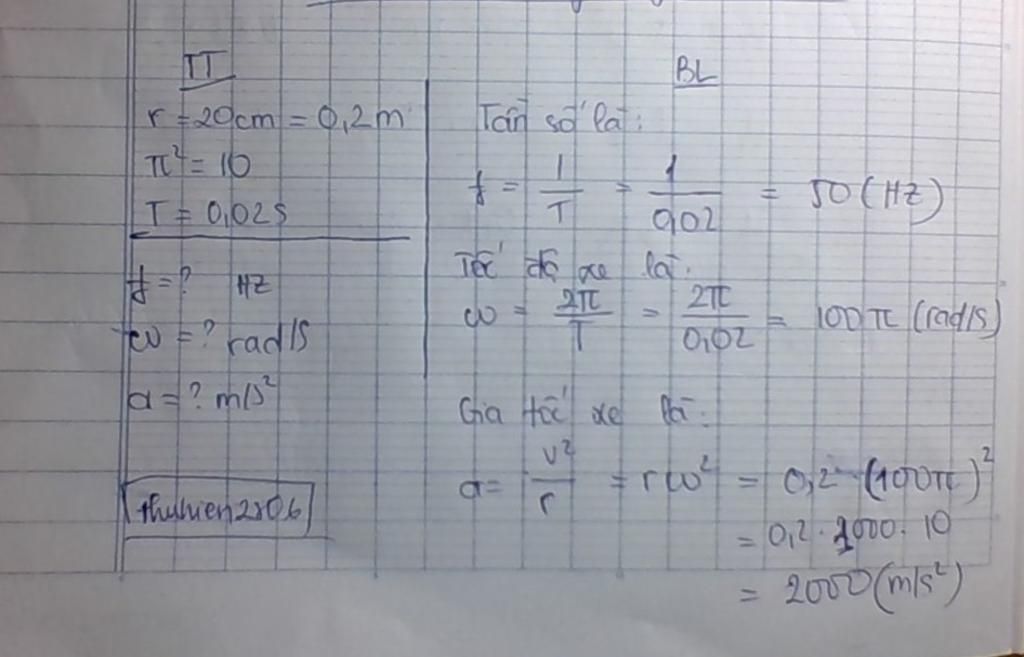 TT
r = 20cm = 0,2m
π² = 10
T = 0,02s
f = ? Hz
ω = ? rad/s
a = ? m/s²
thuhien2806
BL
Tần số là:
f = 1/T = 1/0,02 = 50 (Hz)
Tốc độ xe là:
ω = 2π/T = 2π/0,02 = 100π (rad/s)
Gia tốc xe là:
a = v²/r = rω² = 0,2 · (100π)²
= 0,2 · 1000 · 10
= 2000 (m/s²)